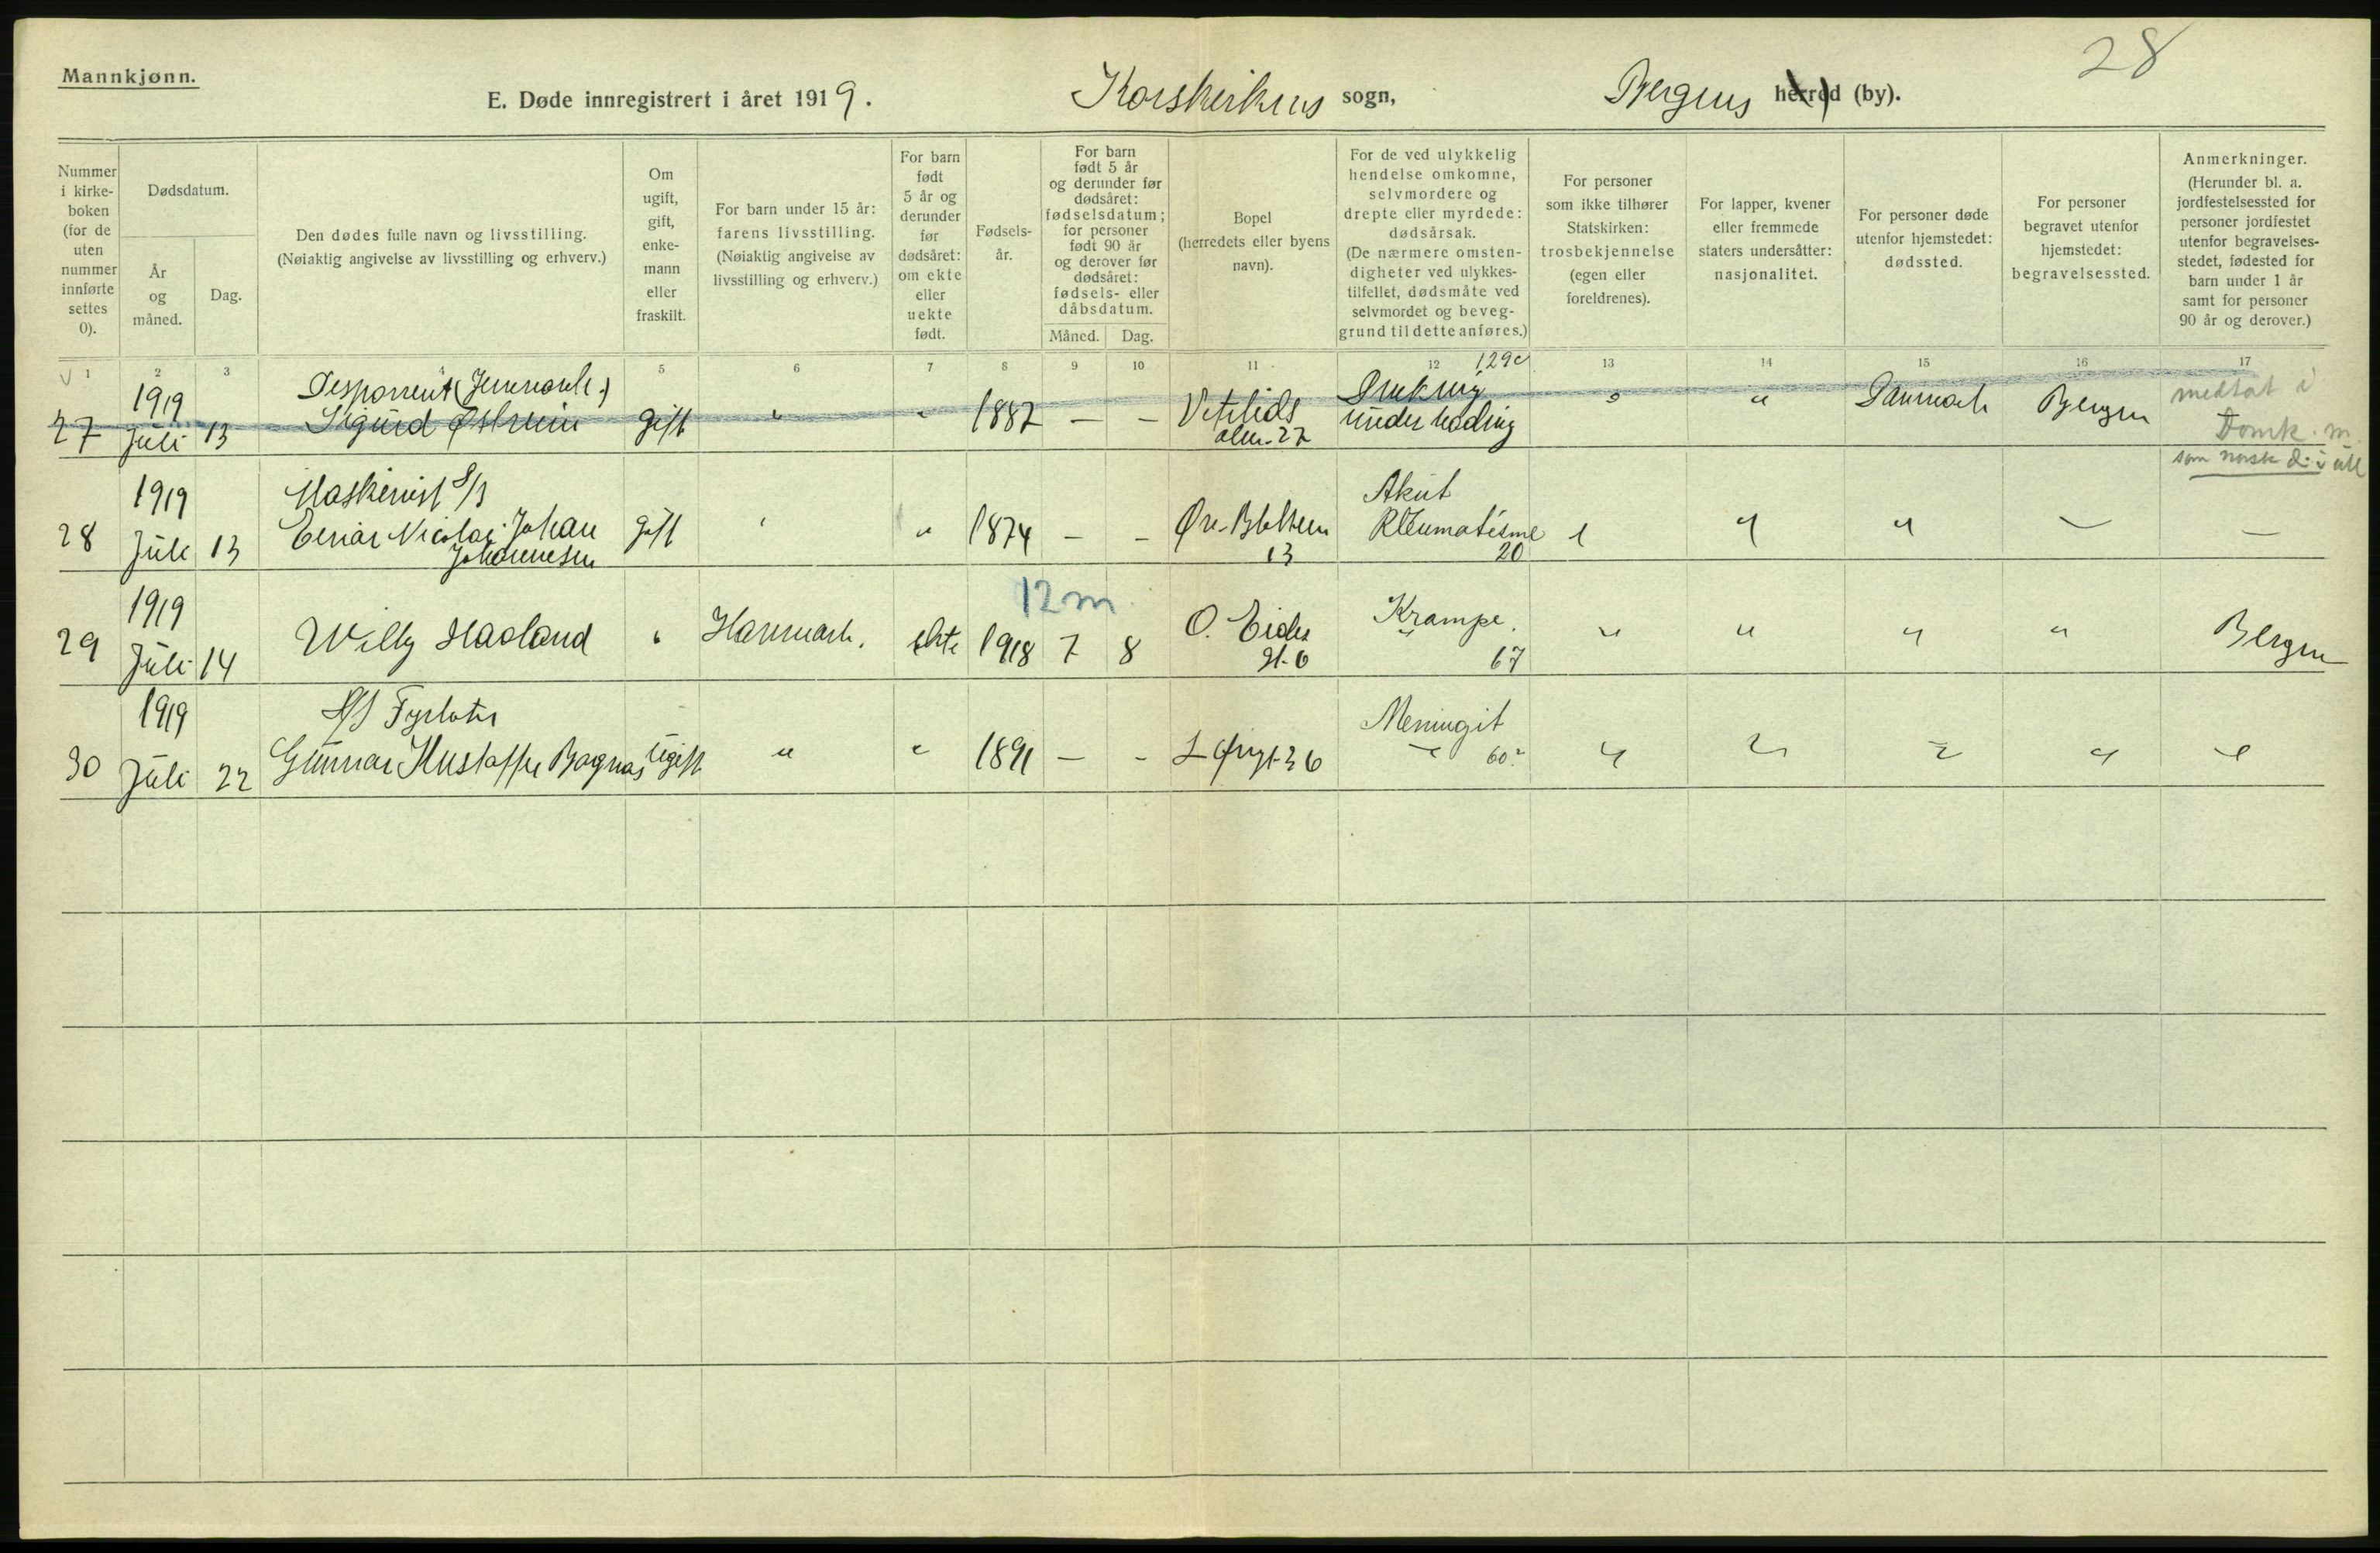 28
Mannkjønn.
E. Døde innregistrert i året 1919. Korskirkens sogn, Bergens herred (by).
Nummer i kirke-boken (for de uten nummer innførte settes 0).
Dødsdatum.
År og måned.
Dag.
Den dødes fulle navn og livsstilling.
(Nøiaktig angivelse av livsstilling og erhverv.)
Om ugift, gift, enke-mann eller fraskilt.
For barn under 15 år: farens livsstilling.
(Nøiaktig angivelse av livsstilling og erhverv.)
For barn født 5 år og derunder før dødsåret: om ekte eller uekte født.
Fødsels-år.
For barn født 5 år og derunder før dødsåret: fødselsdatum; for personer født 90 år og derover før dødsåret: fødsels- eller dåbsdatum.
Måned.
Dag.
Bopel
(herredets eller byens navn).
For de ved ulykkelig hendelse omkomne, selvmordere og drepte eller myrdede: dødsårsak.
(De nærmere omsten-digheter ved ulykkes-tilfellet, dødsmåte ved selvmordet og beveg-grund til dette anføres.)
For personer som ikke tilhører Statskirken: trosbekjennelse (egen eller foreldrenes).
For lapper, kvener eller fremmede staters undersåtter: nasjonalitet.
For personer døde utenfor hjemstedet: dødssted.
For personer begravet utenfor hjemstedet: begravelsessted.
Anmerkninger.
(Herunder bl. a. jordfestelsessted for personer jordfestet utenfor begravelses-stedet, fødested for barn under 1 år samt for personer 90 år og derover.)
1 2 3 4 5 6 7 8 9 10 11 12 13 14 15 16 17
129c
1919 Drukning medtat i
27 Juli 13 Sigurd gift " " 1887 — — under bading " " Danmark Bergen Domk. m.
27 som norsk d. i utl
1919 Maskinist Akut
28 Juli 13 Einar Nicolai Johan gift " " 1874 — — Rheumatisme " " " — —
Johannesen 13 20
1919 12 m Krampe.
29 Juli 14 Willy Haaland " ekte 1918 7 8 O. Eides " " " " Bergen
gt. 6 67
1919 Fyrbøter Meningit
30 Juli 22 Gunnar Bognøs Ugift " " 1891 — — 36 60 " " " " "